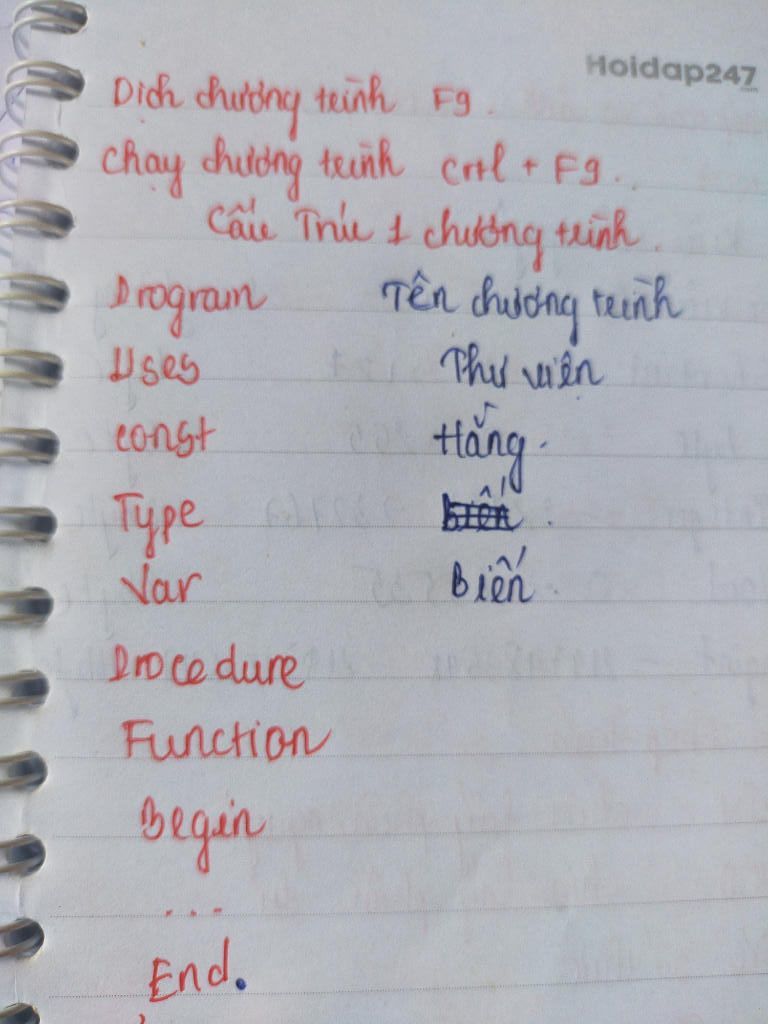 Hoidap247
.com
Dịch chương trình F9.
Chạy chương trình Crtl + F9.
Cấu Trúc 1 chương trình.
Program Tên chương trình
Uses Thư viện
const Hằng.
Type biến.
Var Biến.
Procedure
Function
Begin
...
End.